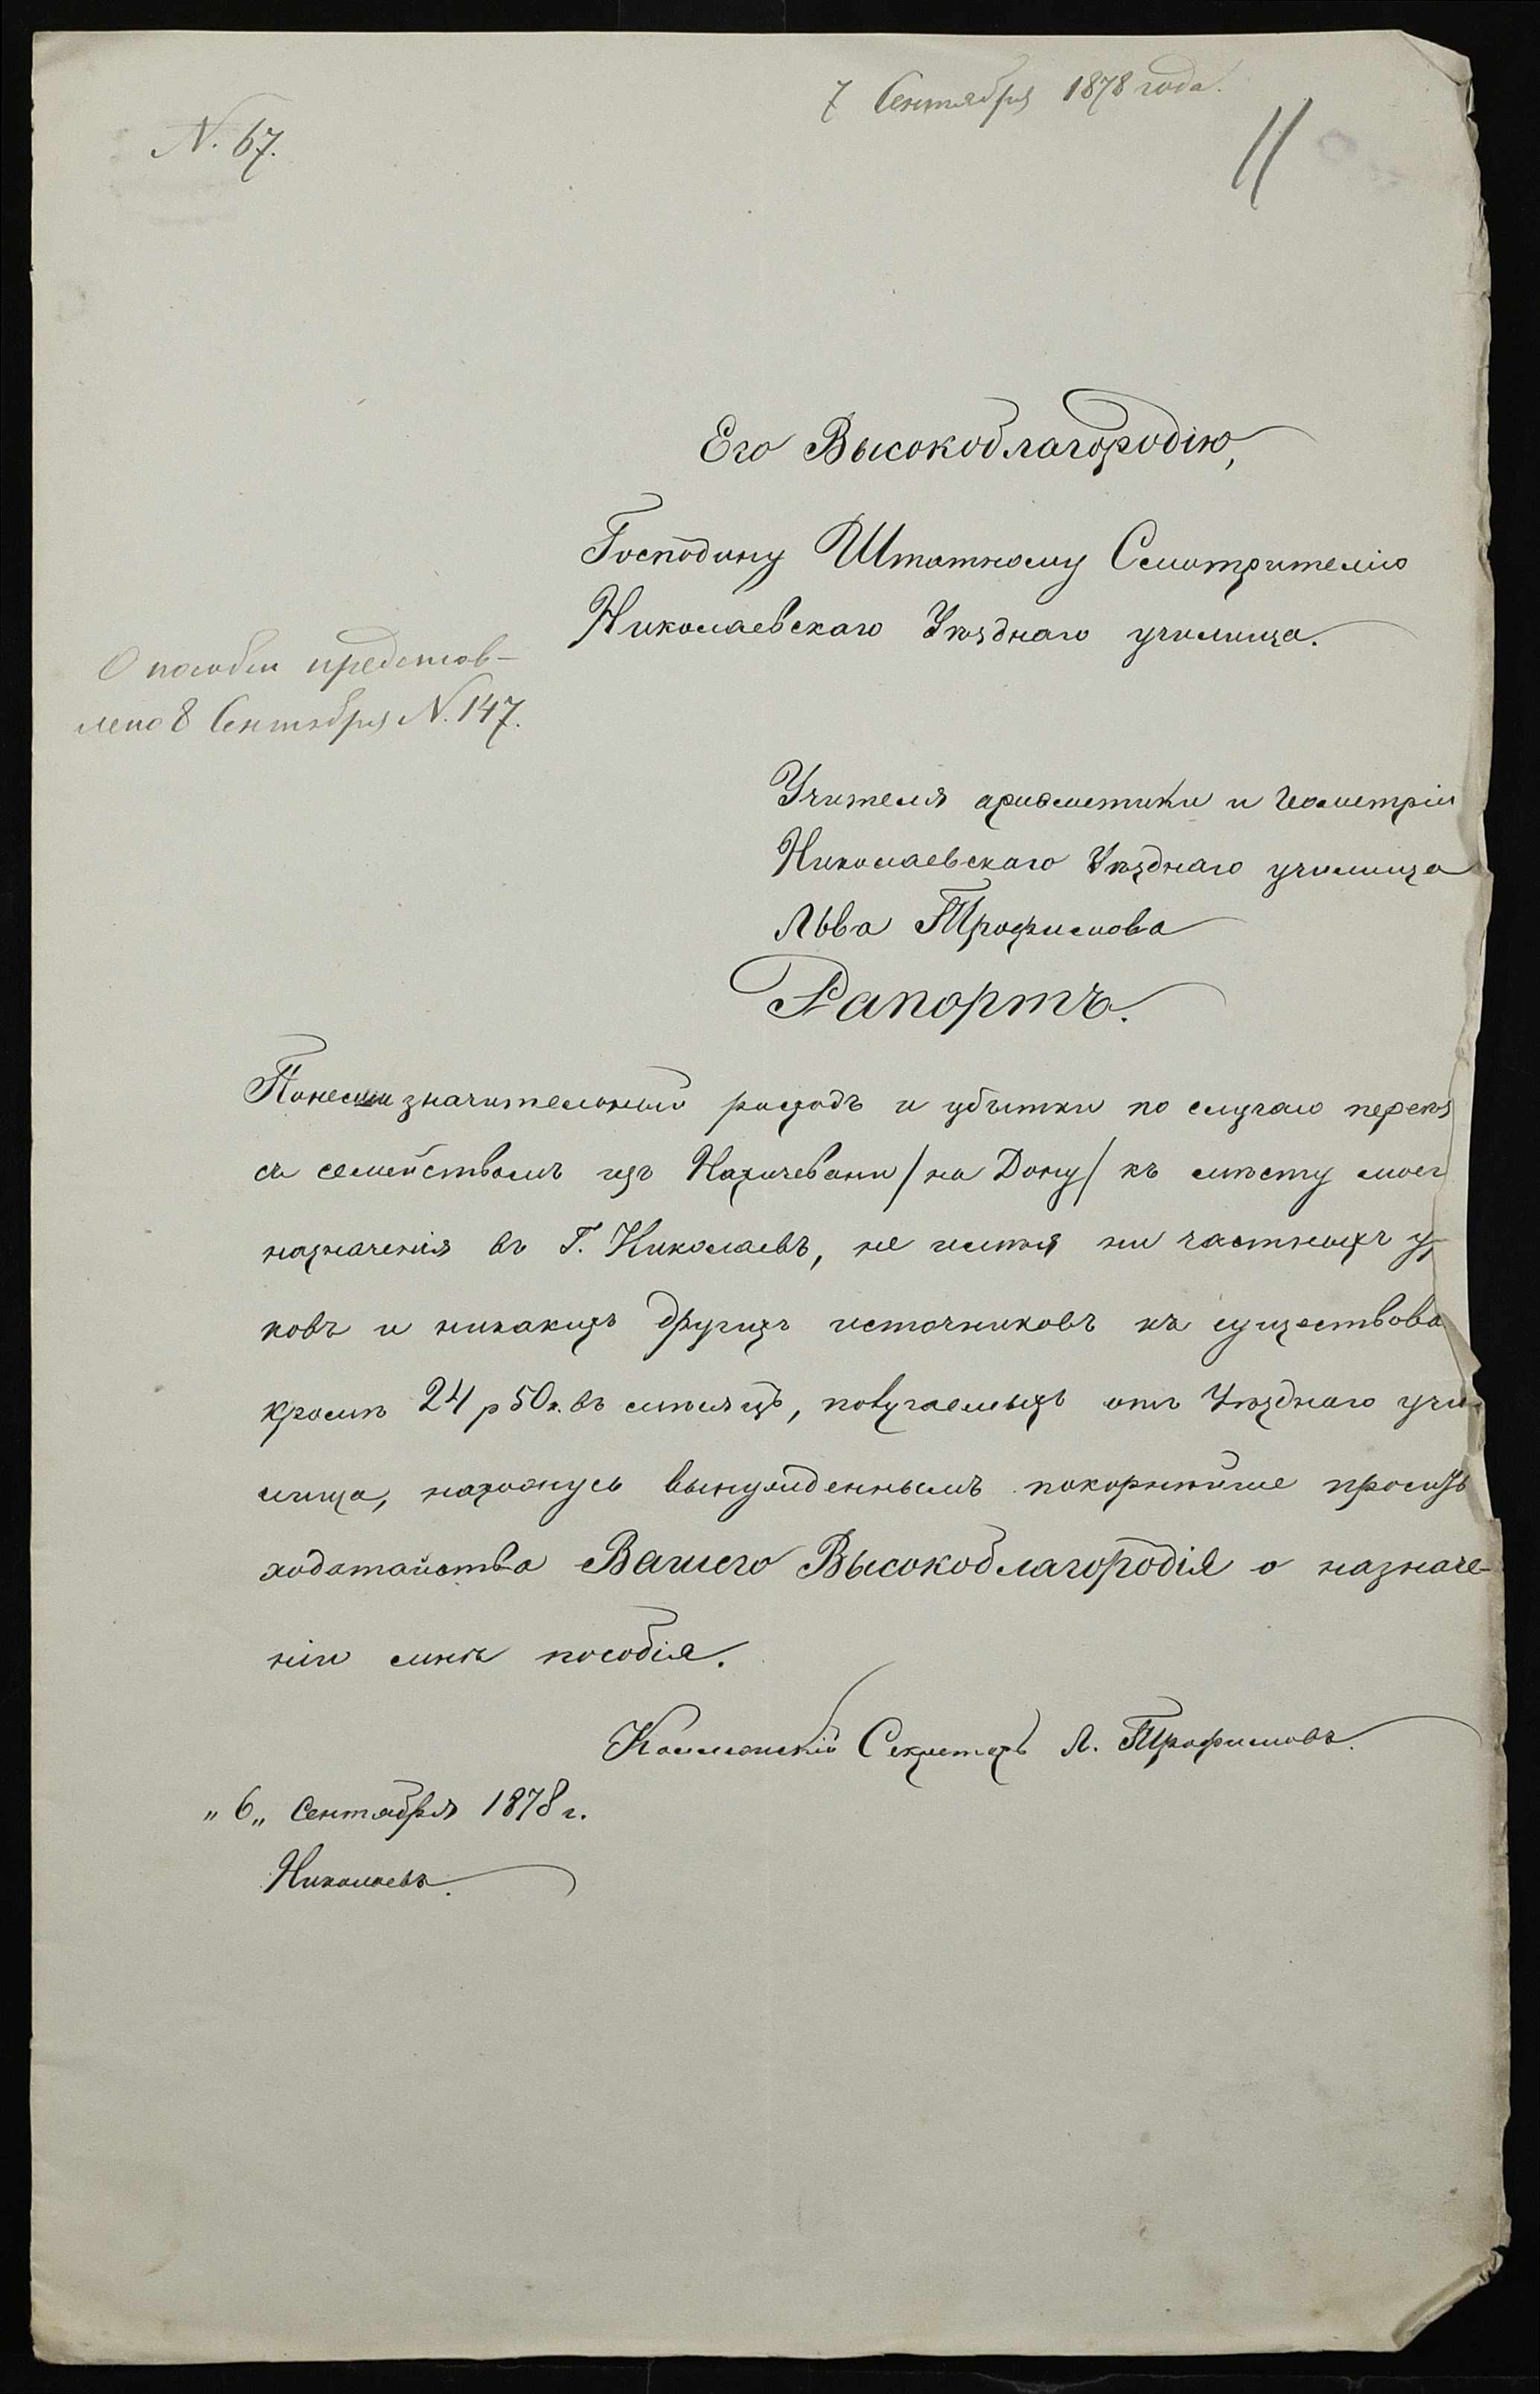 7 Сентября 1878 года.
N. 67.
11
Его Высокоблагородію,
Господину Штатному Смотрителю
Николаевскаго Уѣзднаго училища.
О пособіи представ-
лено 8 Сентября N. 147.
Учителя ариѳметики и Геометріи
Николаевскаго Уѣзднаго училища
Льва Трофимова
Рапортъ.
Понесши значительный расходъ и убытки по случаю переѣз
съ семействомъ изъ Нахичевани /на Дону/ къ мѣсту моег
назначенія въ Г. Николаевъ, не имѣя ни частныхъ у
ковъ и никакихъ другихъ источниковъ къ существова
кромѣ 24 р 50 к. въ мѣсяцъ, получаемыхъ отъ Уѣзднаго учи-
лища, нахожусь вынужденнымъ покорнѣйше просить
ходатайства Вашего Высокоблагородія о назначе-
ніи мнѣ пособія.
Коллежскій Секретарь Л. Трофимовъ.
„6„ Сентября 1878 г.
Николаевъ.